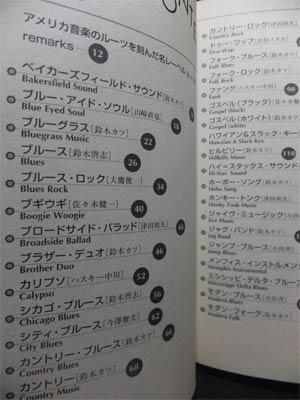 アメリカ音楽のルーツを刻んだ名レーベル
remarks 12
ベイカーズフィールド・サウンド[鈴木カツ]
Bakersfield Sound
ブルー・アイド・ソウル[山崎直也] 18
Blue Eyed Soul
ブルーグラス[鈴木カツ] 22
Bluegrass Music
ブルース[鈴木啓志] 26
Blues
ブルース・ロック[大鷹俊一] 34
Blues Rock
ブギウギ[佐々木健一] 40
Boogie Woogie
ブロードサイド・バラッド[津田和久] 44
Broadside Ballad
ブラザー・デュオ[鈴木カツ] 46
Brother Duo
カリプソ[ハスキー中川] 52
Calypso
シカゴ・ブルース[鈴木啓志] 56
Chicago Blues
シティ・ブルース[今澤俊夫] 62
City Blues
カントリー・ブルース[鈴木カツ] 66
Country Blues
カントリー[鈴木カツ] 68
Country Music
カントリー・ロック[津田和久]
Country Rock
ドゥー・ワップ
Doo-Wop
フォーク・ブルース
Folk Blues
フォーク・ロック
Folk Rock
ファンク[ハスキー中川] 90
Funk
ゴスペル(ブラック)
Gospel (black)
ゴスペル(ホワイト)
Gospel (white)
ハワイアン&スラック・キー
Hawaiian & Slack-Key
ヒルビリー[鈴木カツ] 110
Hillbilly Music
ハイ・スタックス・サウンド
Hi-Stax Sound
ホーボー・ソング
Hobo Song
ホンキー・トンク[津田和久]
Honky Tonk Music
ジャイヴ・ミュージック
Jive Music
ジャグ・バンド[鈴木カツ]
Jug Band
ジャンプ・ブルース
Jump Blues
メンフィス・インストルメント
Memphis Instrumental
ミシシッピ・デルタ・ブルース
Mississippi Delta Blues
モダン・ブルース
Modern Blues
モダン・フォーク
Modern Folk